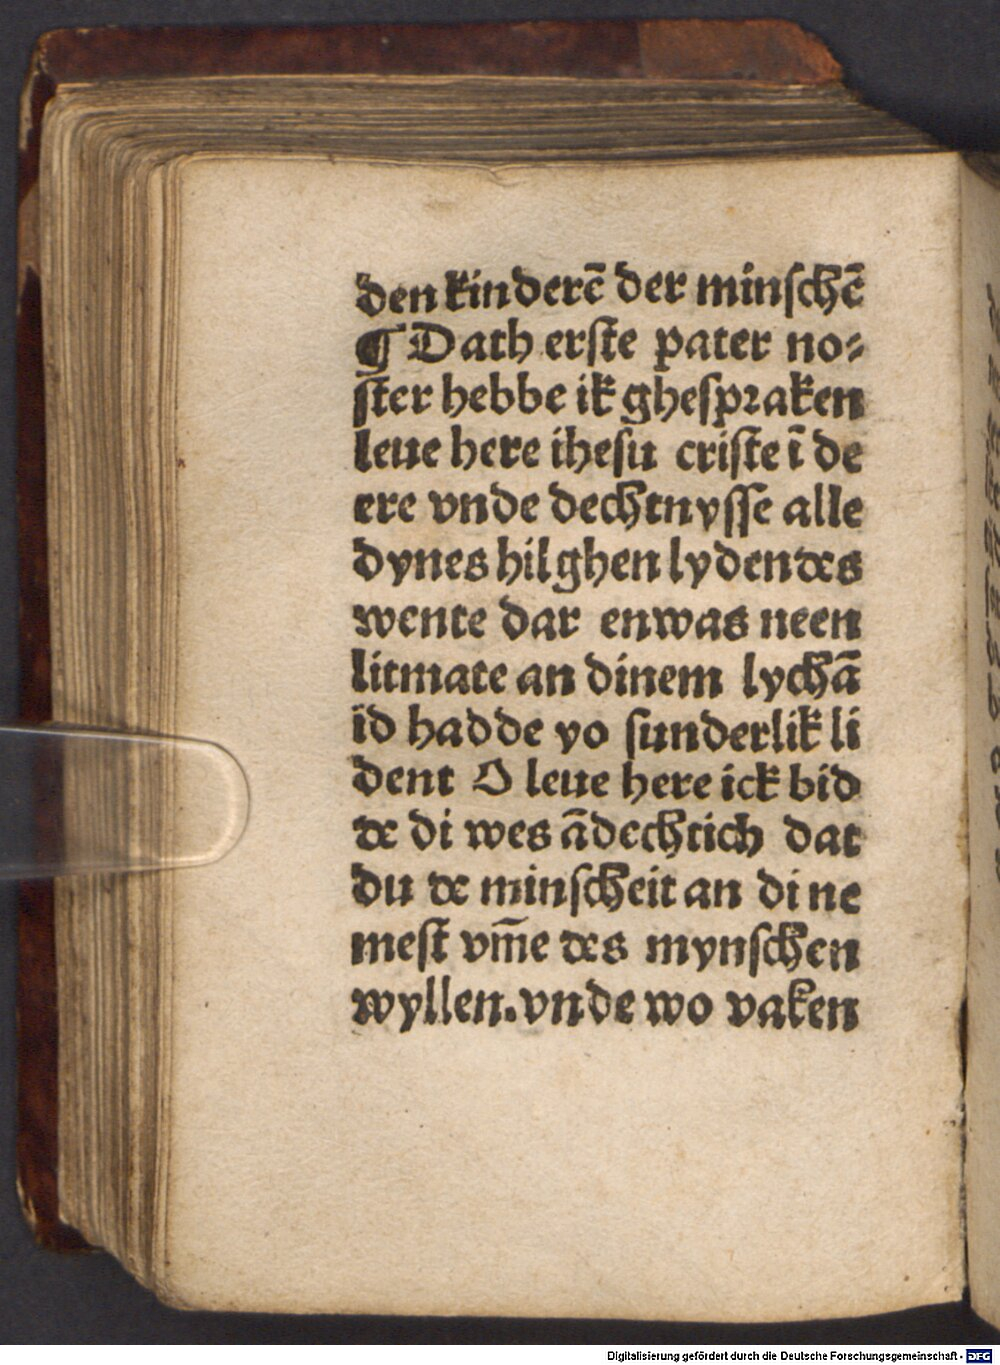 den kinderē der minſchē
¶ Dath erſte pater no⸗
ſter hebbe ik gheſpꝛaken
leue here iheſu criſte ī de
ere vnde dechtnyſſe alle
dynes hilghen lydendes
wente dar enwas neen
litmate an dinem lychā
id hadde yo ſunderlik li
dent O leue here ick bid
de di wes ādechtich dat
du de minſcheit an di ne
meſt vm̄e des mynſchen
wyllen. vnde wo vaken
Digitalisierung gefördert durch die Deutsche Forschungsgemeinschaft - DFG